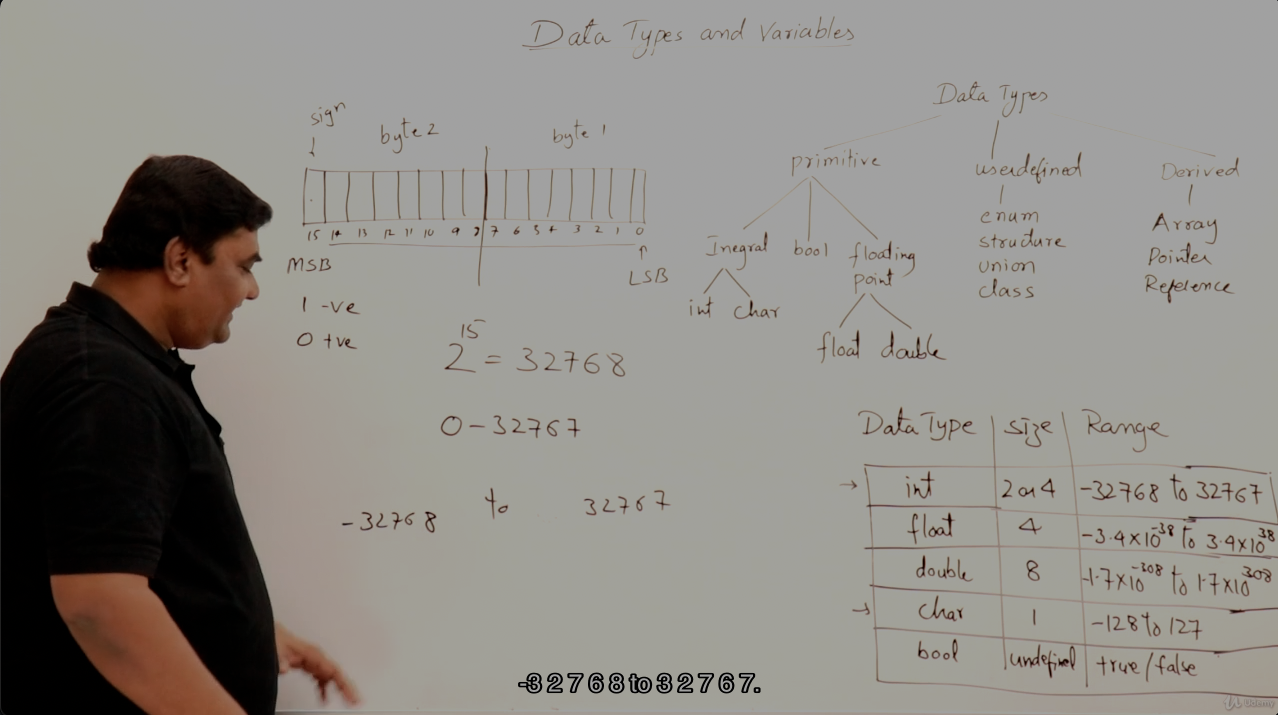 Data Types and Variables
sign
byte 2
byte 1
15 14 13 12 11 10 9 8 7 6 5 4 3 2 1 0
MSB
LSB
1 -ve
0 +ve
2^15 = 32768
0 - 32767
-32768 to 32767
Data Types
primitive
userdefined
Derived
Inegral
bool
floating
point
int
char
float
double
enum
structure
union
class
Array
Pointer
Reference
Data Type size Range
int 2 or 4 -32768 to 32767
float 4 -3.4×10^-38 to 3.4×10^38
double 8 -1.7×10^-308 to 1.7×10^308
char 1 -128 to 127
bool undefined true/false
-32768 to 32767.
Udemy